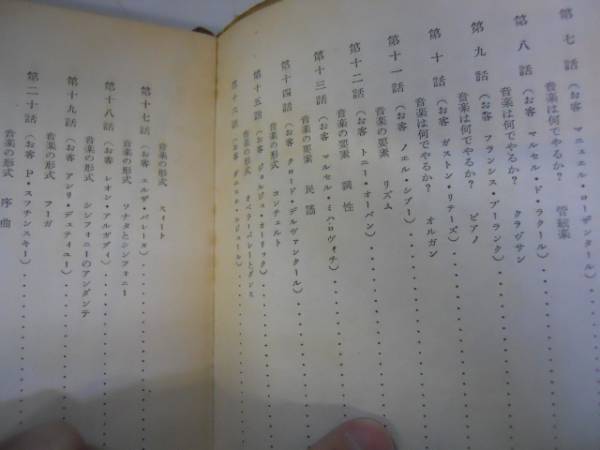 第七話（お客 マニュエル・ローザンタール）
音楽は何でやるか？ 管絃楽
第八話（お客 マルセル・ド・ラクール）
音楽は何でやるか？ クラヴサン
第九話（お客 フランシス・プーランク）
音楽は何でやるか？ ピアノ
第十話（お客 ガストン・リテーズ）
音楽は何でやるか？ オルガン
第十一話（お客 ノエル・シブー）
音楽の要素 リズム
第十二話（お客 トニー・オーバン）
音楽の要素 調性
第十三話（お客 マルセル・ミハロヴィチ）
音楽の要素 民謡
第十四話（お客 クロード・デルヴァンクール）
音楽の形式 コンチェルト
第十五話（お客 ジョルジュ・オーリック）
音楽の形式 オペラ・バレーとダンス
第十六話（お客 ダニエル・
音楽の形式 スィート
第十七話（お客 エルザ・バレーヌ）
音楽の形式 ソナタとシンフォニー
第十八話（お客 レオン・アルザディ）
音楽の形式 シンフィニーのアンダンテ
第十九話（お客 アンリ・デュティユー）
音楽の形式 フーガ
第二十話（お客 P・スフチンスキー）
序曲